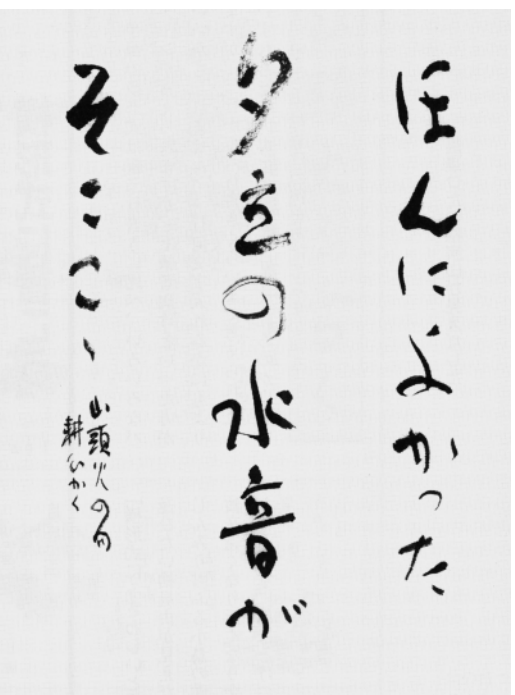 ほんによかった
夕立の水音が
そここゝ
山頭火の句
耕心かく